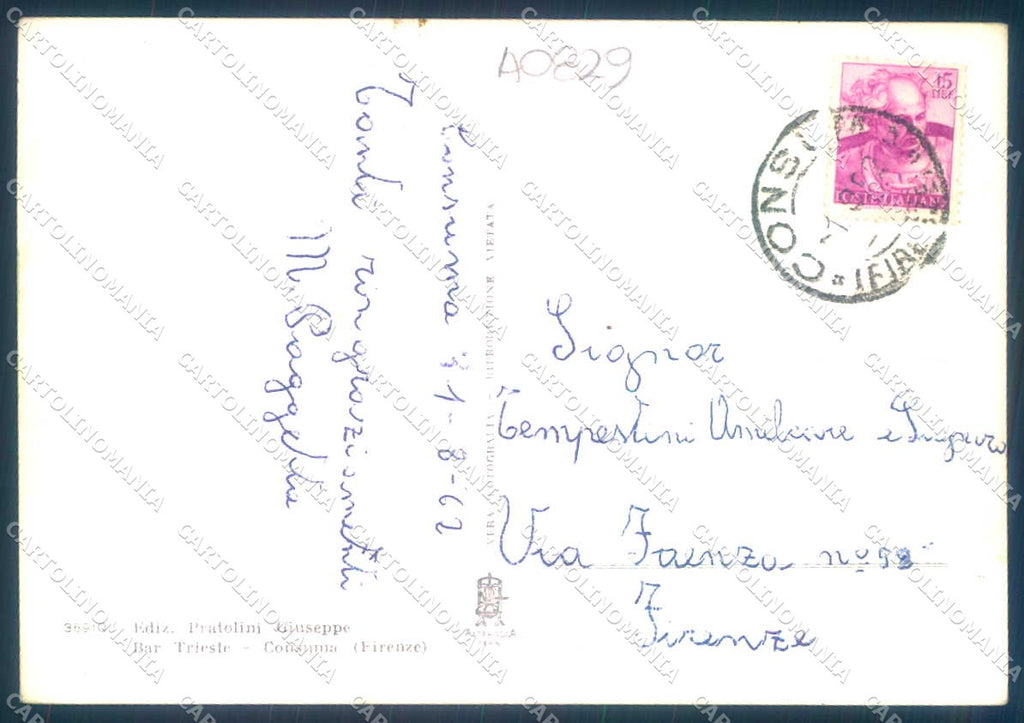 A0829
Consuma 31-8-62
Tanti ringraziamenti
M. Paggetti
VERA FOTOGRAFIA - RIPRODUZIONE VIETATA
45
LIRE
POSTE ITALIANE
CONSUMA
(FIRENZE)
Signor
Tempestini Amilcare e Signora
Via Faenza n° 98
Firenze
Ediz. Pratolini Giuseppe
Bar Trieste - Consuma (Firenze)
CARTOLINOMANIA